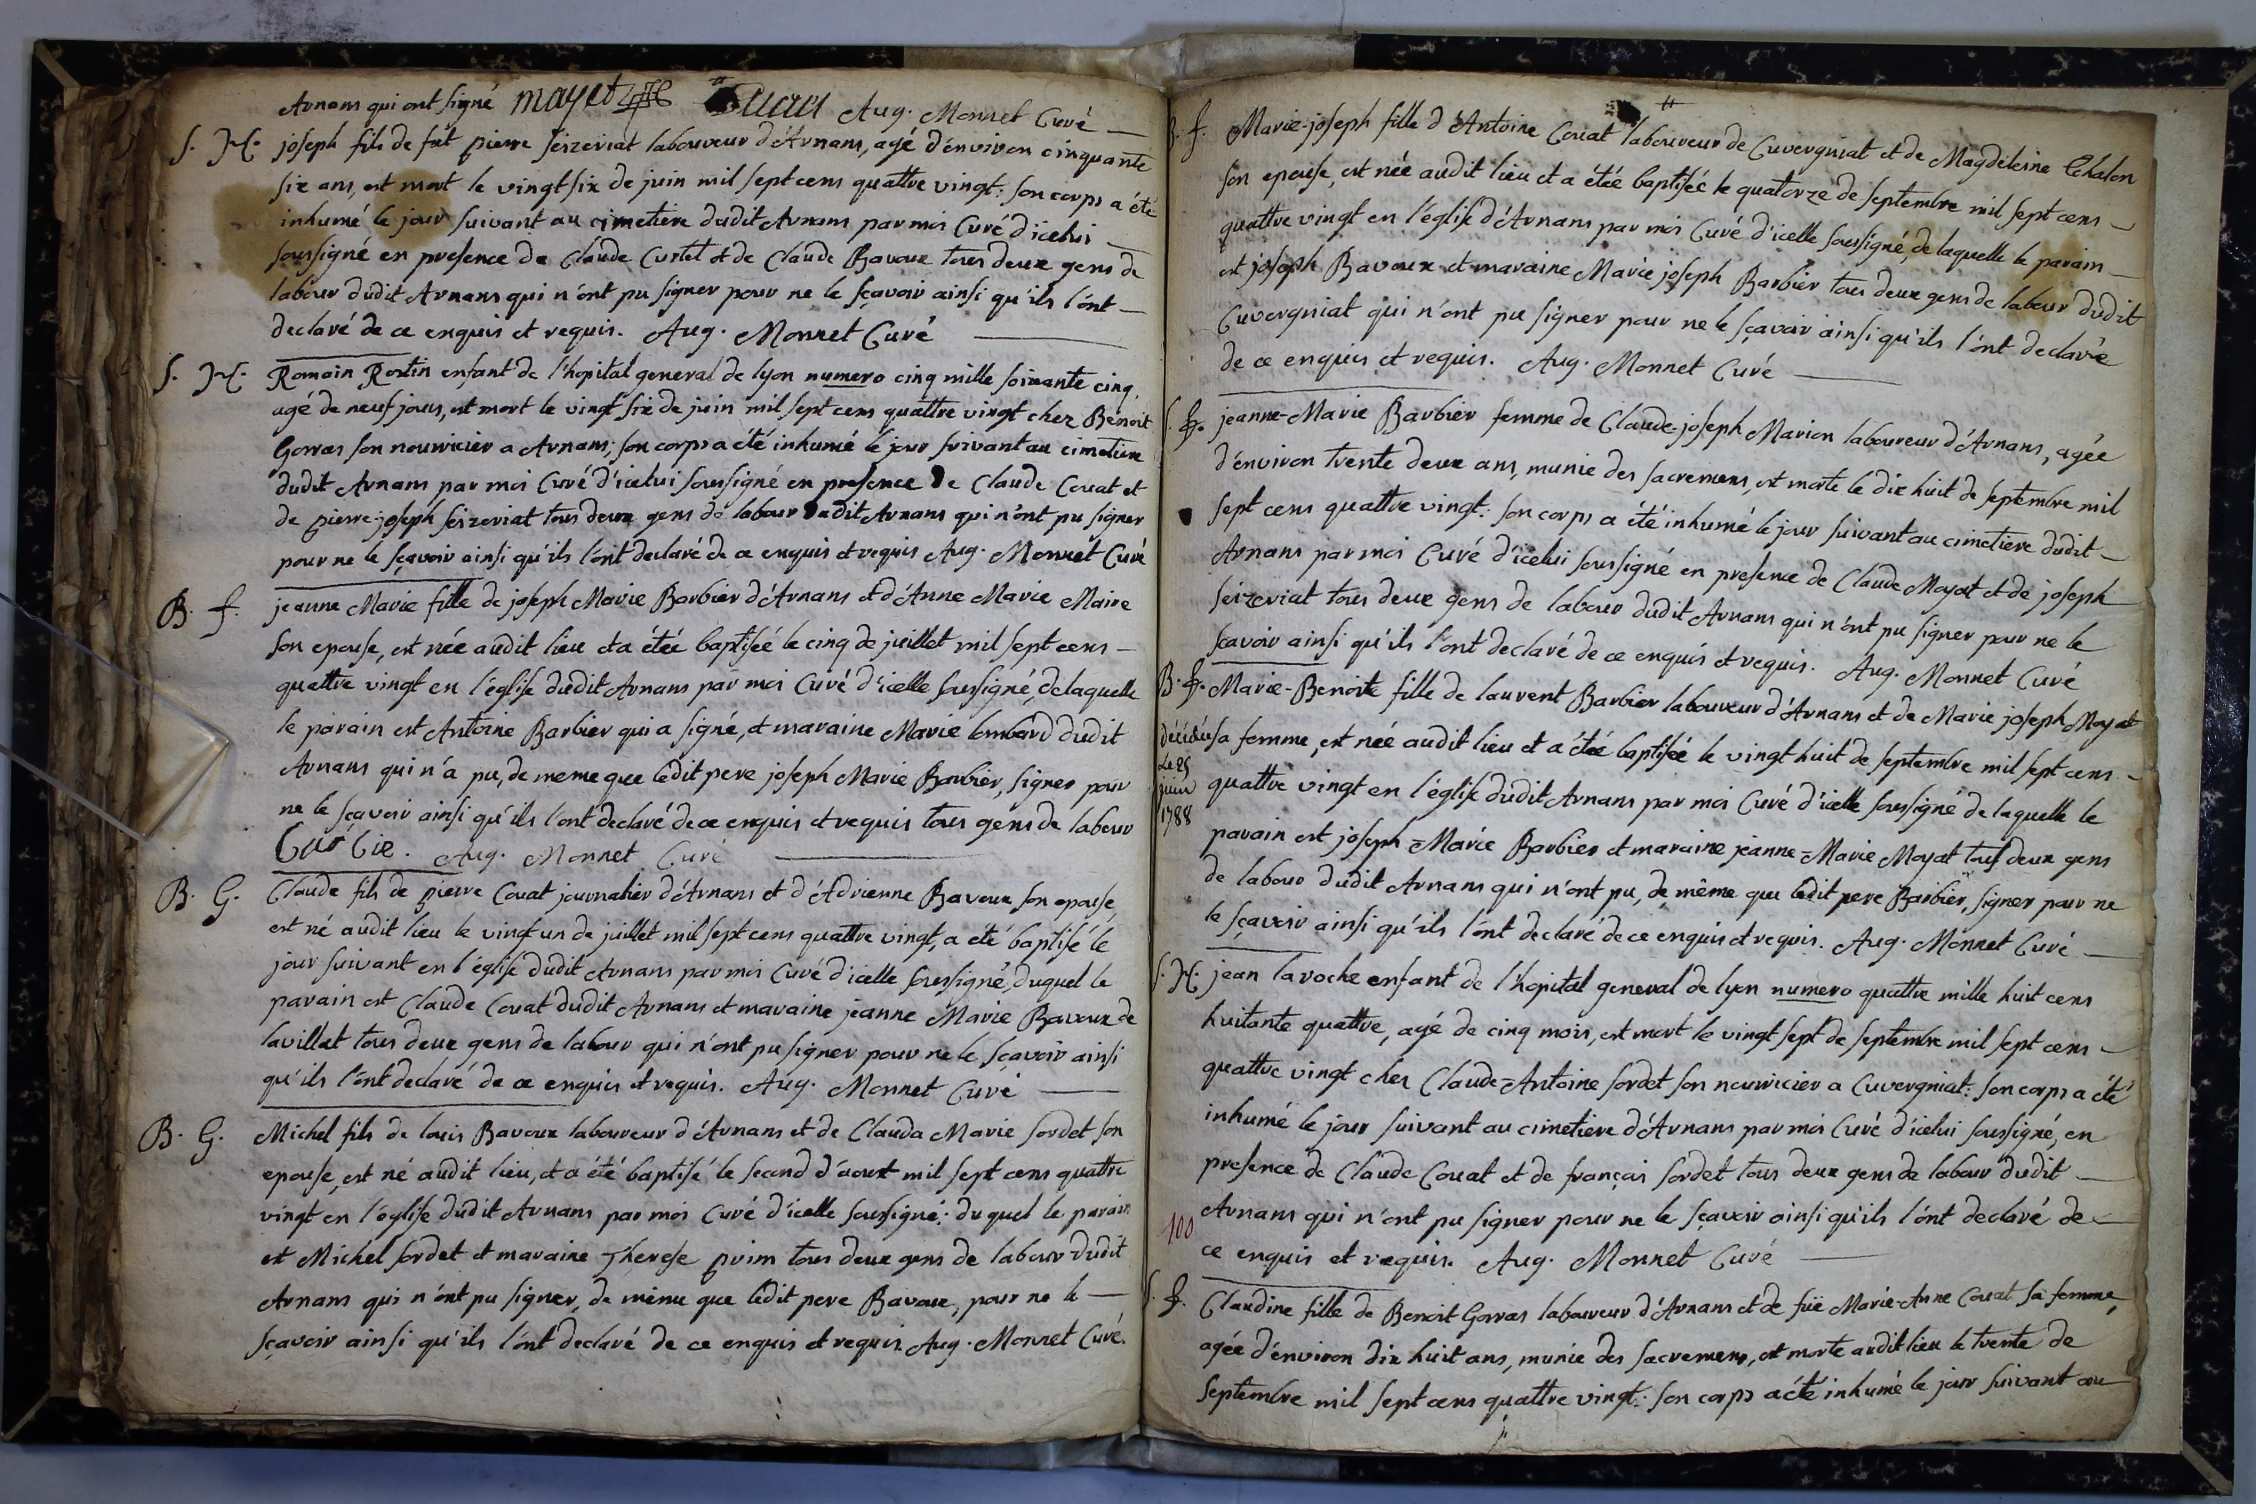 Arnans qui ont signé mayet Aug. Monnet Curé
S. H. joseph fils de fût pierre seizeriat laboureur d'Arnans, agé d'environ cinquante
six ans, est mort le vingt six de juin mil sept cens quattre vingt: son corps a été
inhumé le jour suivant au cimetiere dudit Arnans par moi Curé d'icelui
soussigné en presence de Claude Curtet et de Claude Bavoux tous deux gens de
labour dudit Arnans qui n'ont pu signer pour ne le sçavoir ainsi qu'ils l'ont
declaré de ce enquis et requis. Aug. Monnet Curé
S. H. Romain Rostin enfant de l'hopital general de lyon numero cinq mille soixante cinq,
agé de neuf jours, est mort le vingt six de juin mil sept cens quattre vingt chez Benoit
Gorras son nourricier a Arnans; son corps a été inhumé le jour suivant au cimetiere
dudit Arnans par moi Curé d'icelui soussigné en presence de Claude Couat et
de pierre-joseph seizeriat tous deux gens de labour dudit Arnans qui n'ont pu signer
pour ne le sçavoir ainsi qu'ils l'ont declaré de ce enquis et requis Aug. Monnet Curé
B. f. jeanne Marie fille de joseph Marie Barbier d'Arnans et d'Anne Marie Maire
son epouse, est née audit lieu et a étée baptisée le cinq de juillet mil sept cens
quattre vingt en l'église dudit Arnans par moi Curé d'icelle soussigné, de laquelle
le parain est Antoine Barbier qui a signé, et maraine Marie lombard dudit
Arnans qui n'a pu, de meme que ledit pere joseph Marie Barbier, signer pour
ne le sçavoir ainsi qu'ils l'ont declaré de ce enquis et requis tous gens de labour
Aug. Monnet Curé
B. G. Claude fils de pierre Couat journalier d'Arnans et d'Adrienne Bavoux son epouse
est né audit lieu le vingt un de juillet mil sept cens quattre vingt, a eté baptisé le
jour suivant en l'église dudit Arnans par moi Curé d'icelle soussigné, duquel le
parain est Claude Couat dudit Arnans et maraine jeanne Marie Bavoux de
lavillat tous deux gens de labour qui n'ont pu signer pour ne le sçavoir ainsi
qu'ils l'ont declaré de ce enquis et requis. Aug. Monnet Curé
B. G. Michel fils de louis Bavoux laboureur d'Arnans et de Clauda Marie sordet son
epouse, est né audit lieu, et a été baptisé le second d'aoust mil sept cens quattre
vingt en l'église dudit Arnans par moi Curé d'icelle soussigné: du quel le parain
est Michel sordet et maraine Therese prim tous deux gens de labour dudit
Arnans qui n'ont pu signer, de même que ledit pere Bavoux, pour ne le
sçavoir ainsi qu'ils l'ont declaré de ce enquis et requis. Aug. Monnet Curé.
B. f. Marie-joseph fille d'Antoine Couat laboureur de Cuvergniat et de Magdeleine Chalon
son epouse, est née audit lieu et a étée baptisée le quatorze de septembre mil sept cens
quattre vingt en l'église d'Arnans par moi Curé d'icelle soussigné, de laquelle le parain
est joseph Bavoux et maraine Marie joseph Barbier tous deux gens de labour dudit
Cuvergniat qui n'ont pu signer pour ne le sçavoir ainsi qu'ils l'ont declaré
de ce enquis et requis. Aug. Monnet Curé
S. f. jeanne-Marie Barbier femme de Claude-joseph Marion laboureur d'Arnans, agée
d'environ trente deux ans, munie des sacremens, est morte le dix huit de septembre mil
sept cens quattre vingt: son corps a été inhumé le jour suivant au cimetiere dudit
Arnans par moi Curé d'icelui soussigné en presence de Claude Mayat et de joseph
seizeriat tous deux gens de labour dudit Arnans qui n'ont pu signer pour ne le
sçavoir ainsi qu'ils l'ont declaré de ce enquis et requis. Aug. Monnet Curé
B. f. Marie-Benoite fille de laurent Barbier laboureur d'Arnans et de Marie joseph Mayat
sa femme, est née audit lieu et a étée baptisée le vingt huit de septembre mil sept cens
décédée
Le 25
juin
1788
quattre vingt en l'église dudit Arnans par moi Curé d'icelle soussigné de laquelle le
parain est joseph-Marie Barbier et maraine jeanne-Marie Mayat tous deux gens
de labour dudit Arnans qui n'ont pu, de même que ledit pere Barbier, signer pour ne
le sçavoir ainsi qu'ils l'ont declaré de ce enquis et requis. Aug. Monnet Curé
S. H. jean laroche enfant de l'hopital general de lyon numero quattre mille huit cens
huitante quattre, agé de cinq mois, est mort le vingt sept de septembre mil sept cens
quattre vingt chez Claude-Antoine sordet son nourricier a Cuvergniat: son corps a été
inhumé le jour suivant au cimetiere d'Arnans par moi Curé d'icelui soussigné, en
presence de Claude Couat et de françois sordet tous deux gens de labour dudit
Arnans qui n'ont pu signer pour ne le sçavoir ainsi qu'ils l'ont declaré de
100
ce enquis et requis. Aug. Monnet Curé
S. f. Claudine fille de Benoit Gorras laboureur d'Arnans et de füe Marie-Anne Couat sa femme,
agée d'environ dix huit ans, munie des sacremens, est morte audit lieu le trente de
septembre mil sept cens quattre vingt: son corps a été inhumé le jour suivant au